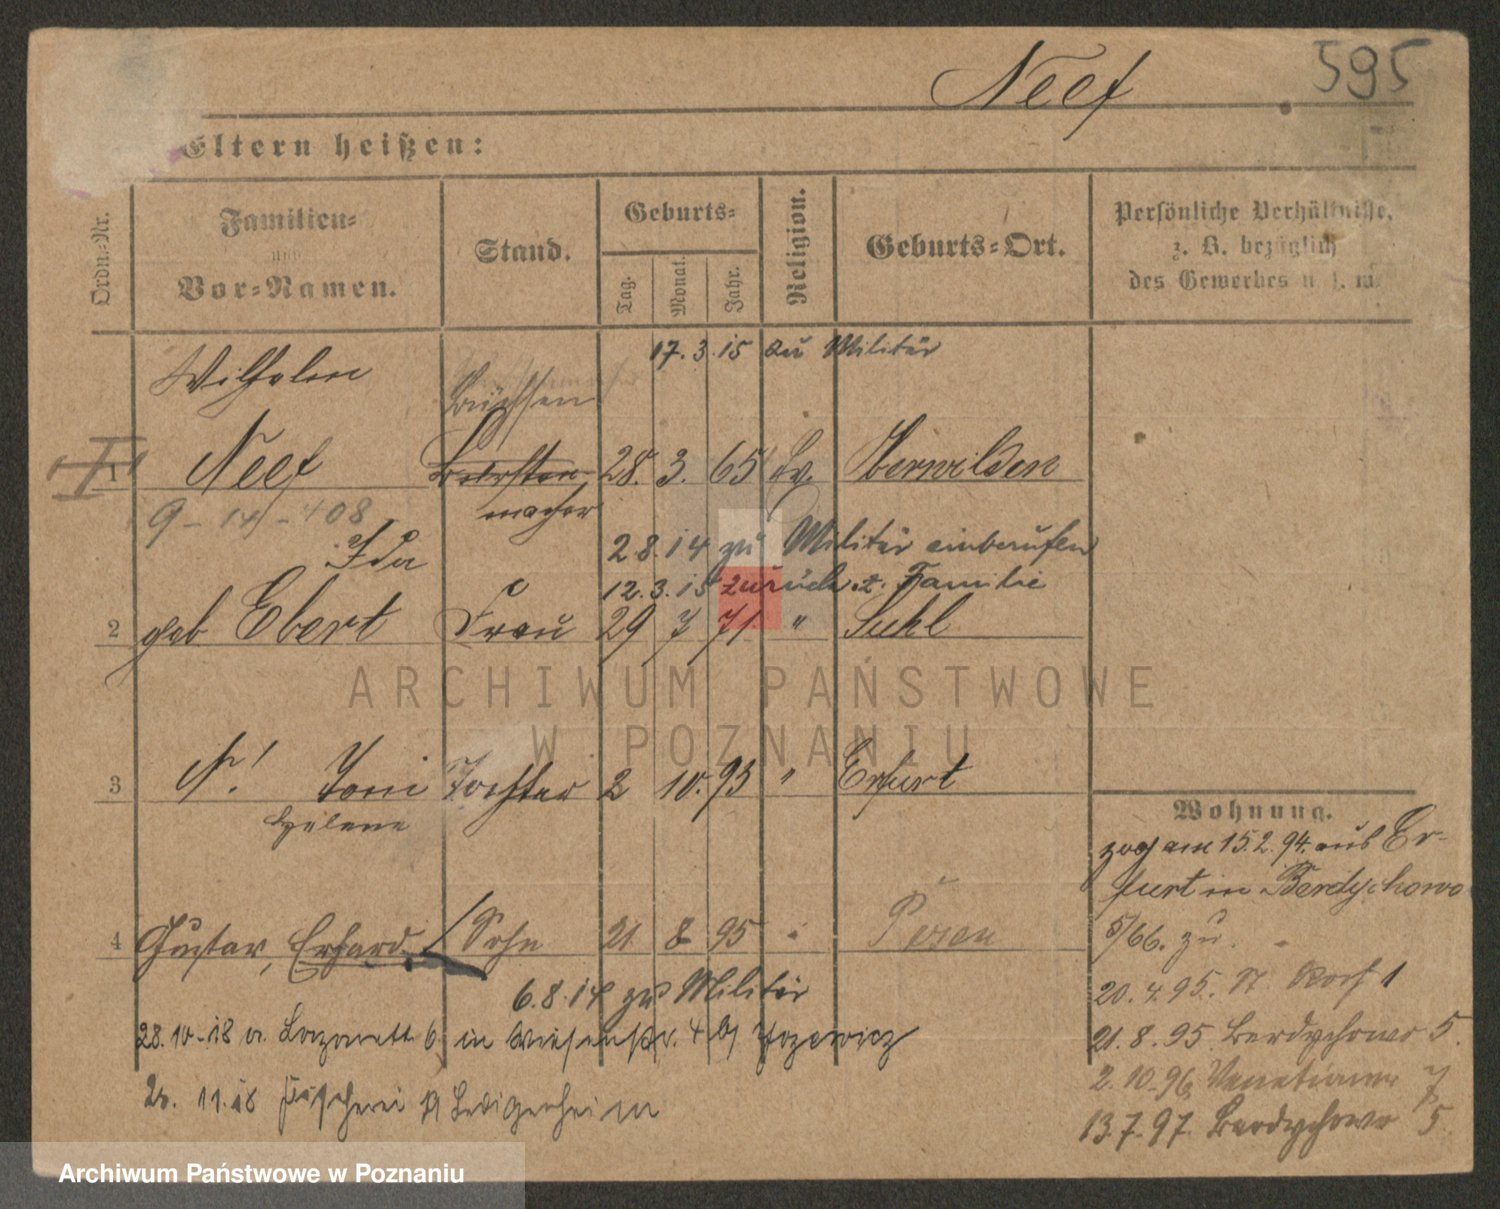 Neef 595
Eltern heißen:
Ordn.-Nr. Familien- und Vor-Namen. Stand. Geburts- Tag. Monat. Jahr. Religion. Geburts-Ort. Persönliche Verhältnisse, z. B. bezüglich des Gewerbes u. s. w.
17.3.15 zu Militär
Wilhelm Büchsen
1 Neef 28. 3. 65 Ev.
macher
9-14-408
28.14 zu Militär einberufen
Ida
12.3.15 zurück z. Familie
2 geb Ebert Frau 29 7 71 " Suhl
ARCHIWUM PAŃSTWOWE
W POZNANIU
3 Toni Tochter 2 10. 93 " Erfurt
Helene
Wohnung.
zog am 15.2.94. aus Er-
furt in Berdychowo
5/66. zu
4 Gustav, Erhard Sohn 21 8 95 Posen
20.4.95. 1
6.8.14 zu Militär
21.8.95 Berdychowo 5.
28.10-18 a. Lazarett 6. in Wiesenstr. 4
2.10.96 Venetianer 7
11.18
13.7.97. Berdychowo 5
Archiwum Państwowe w Poznaniu